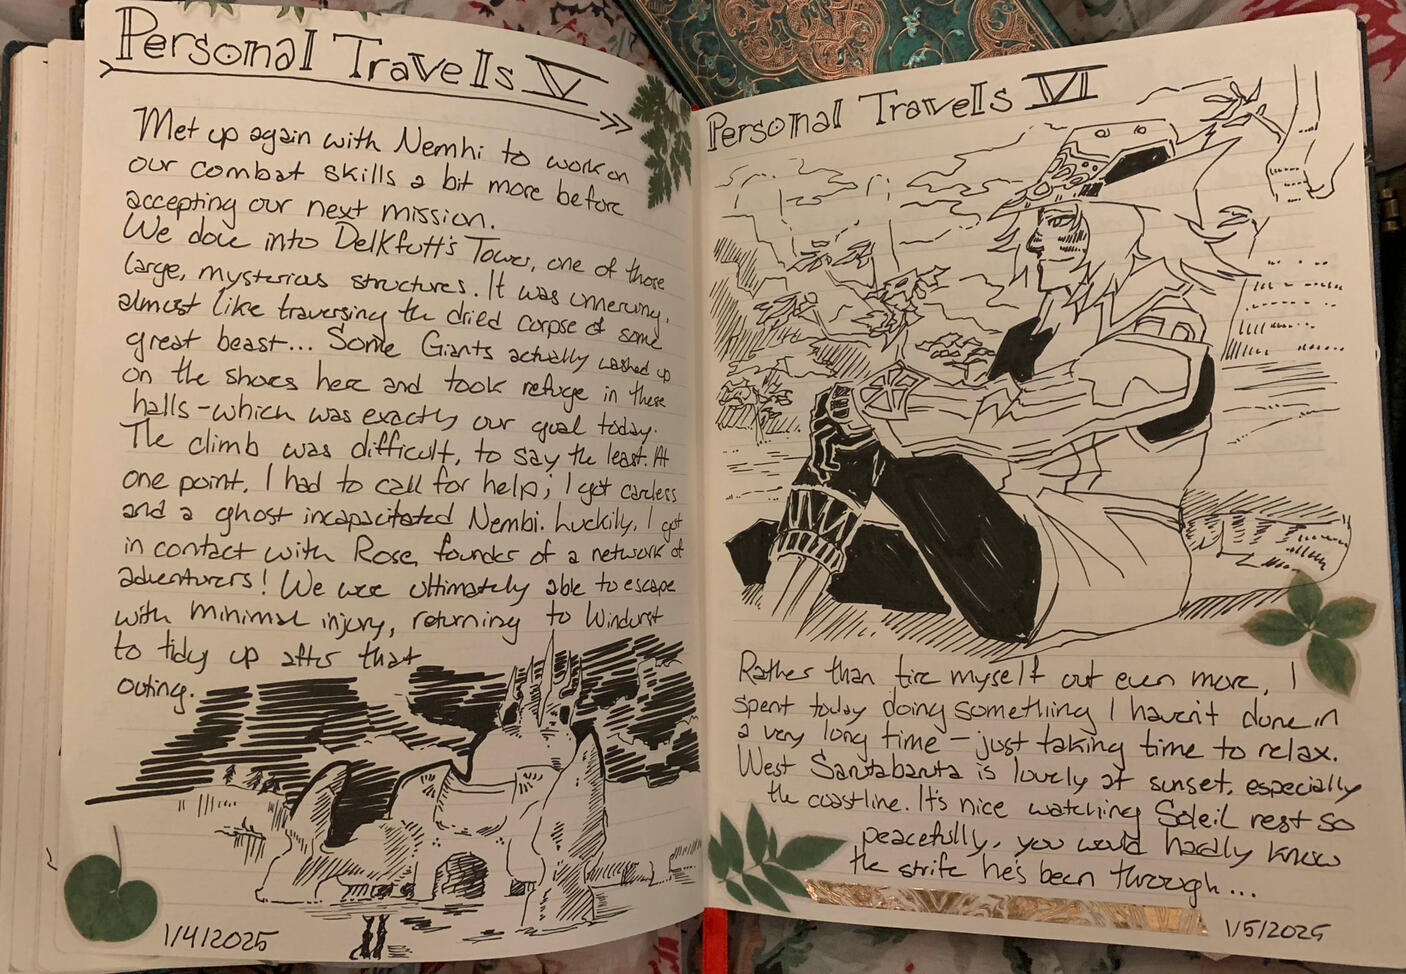 Personal Travels V
Met up again with Nemhi to work on
our combat skills a bit more before
accepting our next mission.
We dove into Delkfutt's Tower, one of those
large, mysterious structures. It was unnerving,
almost like traversing the dried corpse of some
great beast... Some Giants actually washed up
on the shores here and took refuge in these
halls - which was exactly our goal today.
The climb was difficult, to say the least. At
one point, I had to call for help; I got careless
and a ghost incapacitated Nembi. Luckily, I got
in contact with Rose, founder of a network of
adventurers! We were ultimately able to escape
with minimal injury, returning to Windurst
to tidy up after that
outing.
1/4/2025
Personal Travels VI
Rather than tire myself out even more, I
spent today doing something I haven't done in
a very long time - just taking time to relax.
West Sarutabaruta is lovely at sunset, especially
the coastline. It's nice watching Soleil rest so
peacefully, you would hardly know
the strife he's been through...
1/5/2025